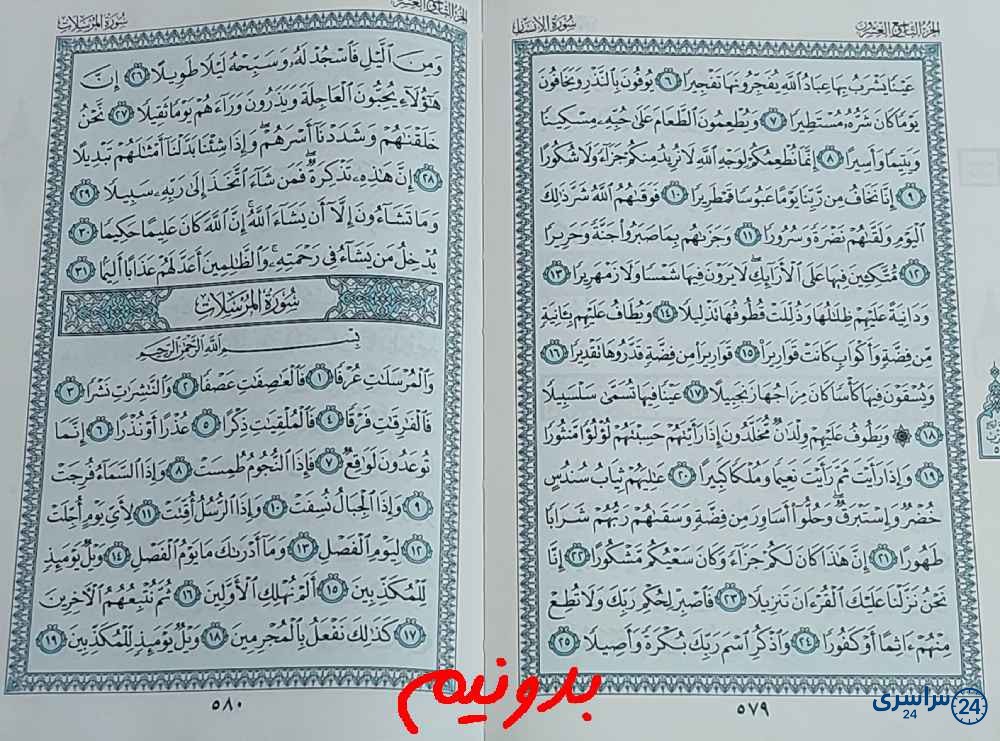 الجزء التاسع والعشرون
سورة الإنسان
عَيْنًا يَشْرَبُ بِهَا عِبَادُ ٱللَّهِ يُفَجِّرُونَهَا تَفْجِيرًا ٦ يُوفُونَ بِٱلنَّذْرِ وَيَخَافُونَ
يَوْمًا كَانَ شَرُّهُۥ مُسْتَطِيرًا ٧ وَيُطْعِمُونَ ٱلطَّعَامَ عَلَىٰ حُبِّهِۦ مِسْكِينًا
وَيَتِيمًا وَأَسِيرًا ٨ إِنَّمَا نُطْعِمُكُمْ لِوَجْهِ ٱللَّهِ لَا نُرِيدُ مِنكُمْ جَزَآءً وَلَا شُكُورًا
٩ إِنَّا نَخَافُ مِن رَّبِّنَا يَوْمًا عَبُوسًا قَمْطَرِيرًا ١٠ فَوَقَىٰهُمُ ٱللَّهُ شَرَّ ذَٰلِكَ
ٱلْيَوْمِ وَلَقَّىٰهُمْ نَضْرَةً وَسُرُورًا ١١ وَجَزَىٰهُم بِمَا صَبَرُوا۟ جَنَّةً وَحَرِيرًا
١٢ مُّتَّكِـِٔينَ فِيهَا عَلَى ٱلْأَرَآئِكِ ۖ لَا يَرَوْنَ فِيهَا شَمْسًا وَلَا زَمْهَرِيرًا ١٣
وَدَانِيَةً عَلَيْهِمْ ظِلَٰلُهَا وَذُلِّلَتْ قُطُوفُهَا تَذْلِيلًا ١٤ وَيُطَافُ عَلَيْهِم بِـَٔانِيَةٍ
مِّن فِضَّةٍ وَأَكْوَابٍ كَانَتْ قَوَارِيرَا۠ ١٥ قَوَارِيرَا۟ مِن فِضَّةٍ قَدَّرُوهَا تَقْدِيرًا ١٦
وَيُسْقَوْنَ فِيهَا كَأْسًا كَانَ مِزَاجُهَا زَنجَبِيلًا ١٧ عَيْنًا فِيهَا تُسَمَّىٰ سَلْسَبِيلًا
١٨ ۞ وَيَطُوفُ عَلَيْهِمْ وِلْدَٰنٌ مُّخَلَّدُونَ إِذَا رَأَيْتَهُمْ حَسِبْتَهُمْ لُؤْلُؤًا مَّنثُورًا
١٩ وَإِذَا رَأَيْتَ ثَمَّ رَأَيْتَ نَعِيمًا وَمُلْكًا كَبِيرًا ٢٠ عَٰلِيَهُمْ ثِيَابُ سُندُسٍ
خُضْرٌ وَإِسْتَبْرَقٌ ۖ وَحُلُّوٓا۟ أَسَاوِرَ مِن فِضَّةٍ وَسَقَىٰهُمْ رَبُّهُمْ شَرَابًا
طَهُورًا ٢١ إِنَّ هَٰذَا كَانَ لَكُمْ جَزَآءً وَكَانَ سَعْيُكُم مَّشْكُورًا ٢٢ إِنَّا
نَحْنُ نَزَّلْنَا عَلَيْكَ ٱلْقُرْءَانَ تَنزِيلًا ٢٣ فَٱصْبِرْ لِحُكْمِ رَبِّكَ وَلَا تُطِعْ
مِنْهُمْ ءَاثِمًا أَوْ كَفُورًا ٢٤ وَٱذْكُرِ ٱسْمَ رَبِّكَ بُكْرَةً وَأَصِيلًا ٢٥
٥٧٩
الجزء التاسع والعشرون
سورة المرسلات
وَمِنَ ٱلَّيْلِ فَٱسْجُدْ لَهُۥ وَسَبِّحْهُ لَيْلًا طَوِيلًا ٢٦ إِنَّ
هَٰٓؤُلَآءِ يُحِبُّونَ ٱلْعَاجِلَةَ وَيَذَرُونَ وَرَآءَهُمْ يَوْمًا ثَقِيلًا ٢٧ نَّحْنُ
خَلَقْنَٰهُمْ وَشَدَدْنَآ أَسْرَهُمْ ۖ وَإِذَا شِئْنَا بَدَّلْنَآ أَمْثَٰلَهُمْ تَبْدِيلًا
٢٨ إِنَّ هَٰذِهِۦ تَذْكِرَةٌ ۖ فَمَن شَآءَ ٱتَّخَذَ إِلَىٰ رَبِّهِۦ سَبِيلًا ٢٩
وَمَا تَشَآءُونَ إِلَّآ أَن يَشَآءَ ٱللَّهُ ۚ إِنَّ ٱللَّهَ كَانَ عَلِيمًا حَكِيمًا ٣٠
يُدْخِلُ مَن يَشَآءُ فِى رَحْمَتِهِۦ ۚ وَٱلظَّٰلِمِينَ أَعَدَّ لَهُمْ عَذَابًا أَلِيمًۢا ٣١
سُورَةُ المُرْسَلَاتِ
بِسْمِ ٱللَّهِ ٱلرَّحْمَٰنِ ٱلرَّحِيمِ
وَٱلْمُرْسَلَٰتِ عُرْفًا ١ فَٱلْعَٰصِفَٰتِ عَصْفًا ٢ وَٱلنَّٰشِرَٰتِ نَشْرًا ٣
فَٱلْفَٰرِقَٰتِ فَرْقًا ٤ فَٱلْمُلْقِيَٰتِ ذِكْرًا ٥ عُذْرًا أَوْ نُذْرًا ٦ إِنَّمَا
تُوعَدُونَ لَوَٰقِعٌ ٧ فَإِذَا ٱلنُّجُومُ طُمِسَتْ ٨ وَإِذَا ٱلسَّمَآءُ فُرِجَتْ
٩ وَإِذَا ٱلْجِبَالُ نُسِفَتْ ١٠ وَإِذَا ٱلرُّسُلُ أُقِّتَتْ ١١ لِأَىِّ يَوْمٍ أُجِّلَتْ
١٢ لِيَوْمِ ٱلْفَصْلِ ١٣ وَمَآ أَدْرَىٰكَ مَا يَوْمُ ٱلْفَصْلِ ١٤ وَيْلٌ يَوْمَئِذٍ
لِّلْمُكَذِّبِينَ ١٥ أَلَمْ نُهْلِكِ ٱلْأَوَّلِينَ ١٦ ثُمَّ نُتْبِعُهُمُ ٱلْءَاخِرِينَ
١٧ كَذَٰلِكَ نَفْعَلُ بِٱلْمُجْرِمِينَ ١٨ وَيْلٌ يَوْمَئِذٍ لِّلْمُكَذِّبِينَ ١٩
٥٨٠
بدونیم
سراسری 24
24